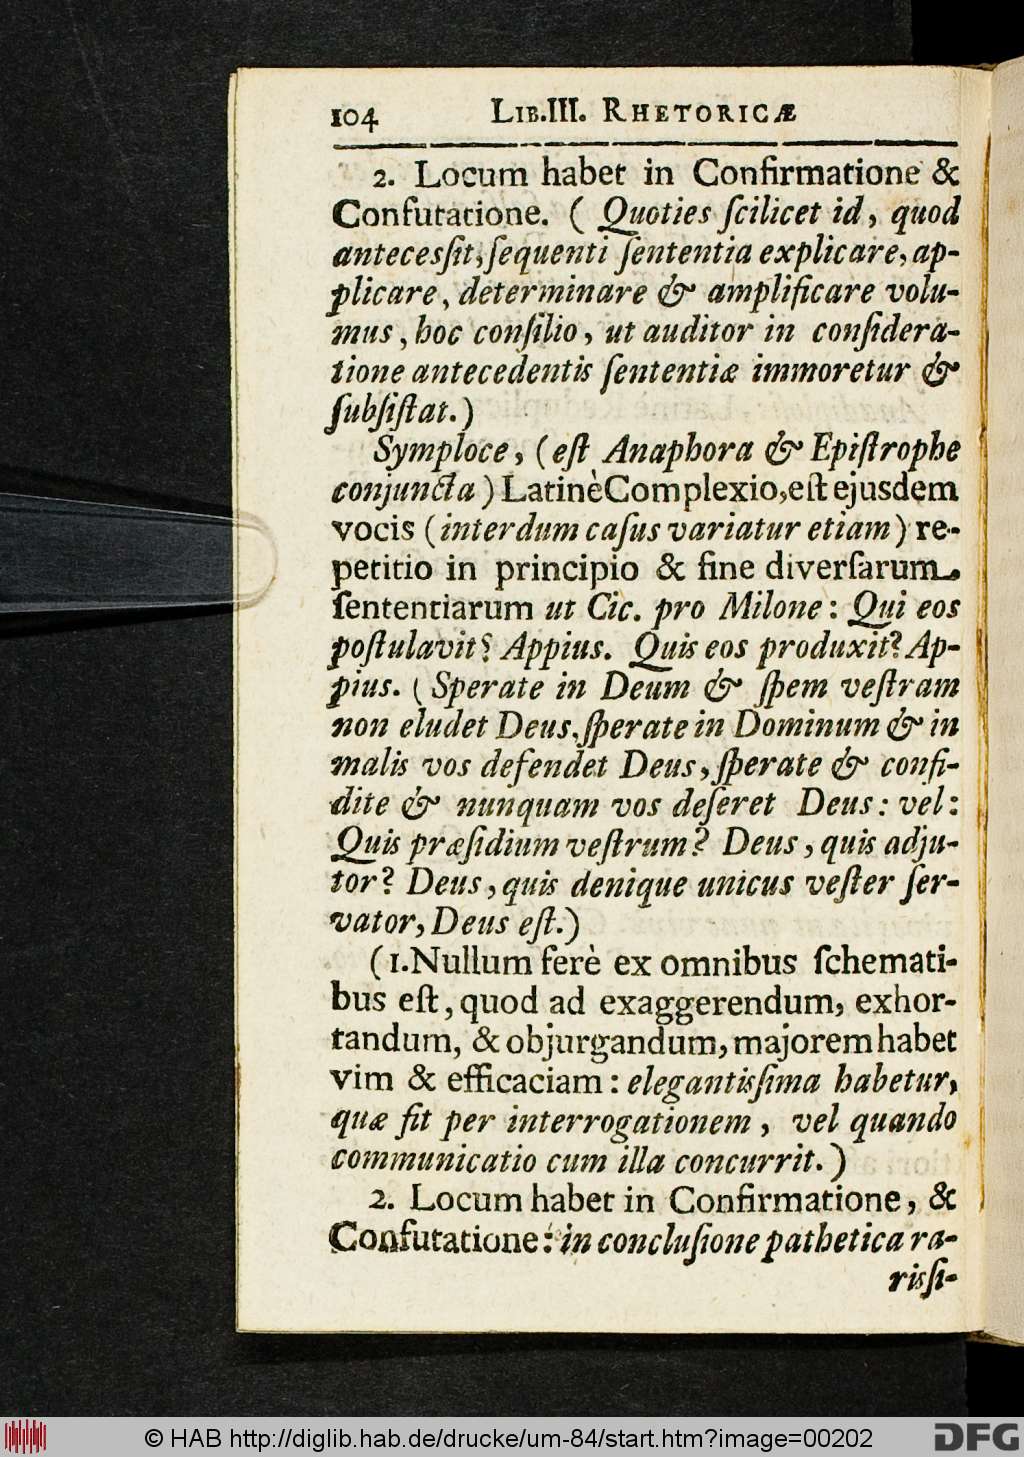 104 LIB.III. RHETORICÆ
2. Locum habet in Confirmatione &
Confutatione. ( Quoties ſcilicet id, quod
antecesſit, ſequenti ſententia explicare, ap-
plicare, determinare & amplificare volu-
mus, hoc conſilio, ut auditor in conſidera-
tione antecedentis ſententiæ immoretur &
ſubſiſtat.)
Symploce, (eſt Anaphora & Epiſtrophe
conjuncta) Latinè Complexio, eſt ejusdem
vocis (interdum caſus variatur etiam) re-
petitio in principio & fine diverſarum
ſententiarum ut Cic. pro Milone: Qui eos
poſtulavit? Appius. Quis eos produxit? Ap-
pius. (Sperate in Deum & ſpem veſtram
non eludet Deus, ſperate in Dominum & in
malis vos defendet Deus, ſperate & confi-
dite & nunquam vos deſeret Deus: vel:
Quis præſidium veſtrum? Deus, quis adju-
tor? Deus, quis denique unicus veſter ſer-
vator, Deus eſt.)
(1. Nullum ferè ex omnibus ſchemati-
bus eſt, quod ad exaggerendum, exhor-
tandum, & objurgandum, majorem habet
vim & efficaciam: elegantisſima habetur,
quæ fit per interrogationem, vel quando
communicatio cum illa concurrit.)
2. Locum habet in Confirmatione, &
Confutatione: in concluſione pathetica ra-
risſi-
© HAB http://diglib.hab.de/drucke/um-84/start.htm?image=00202
DFG